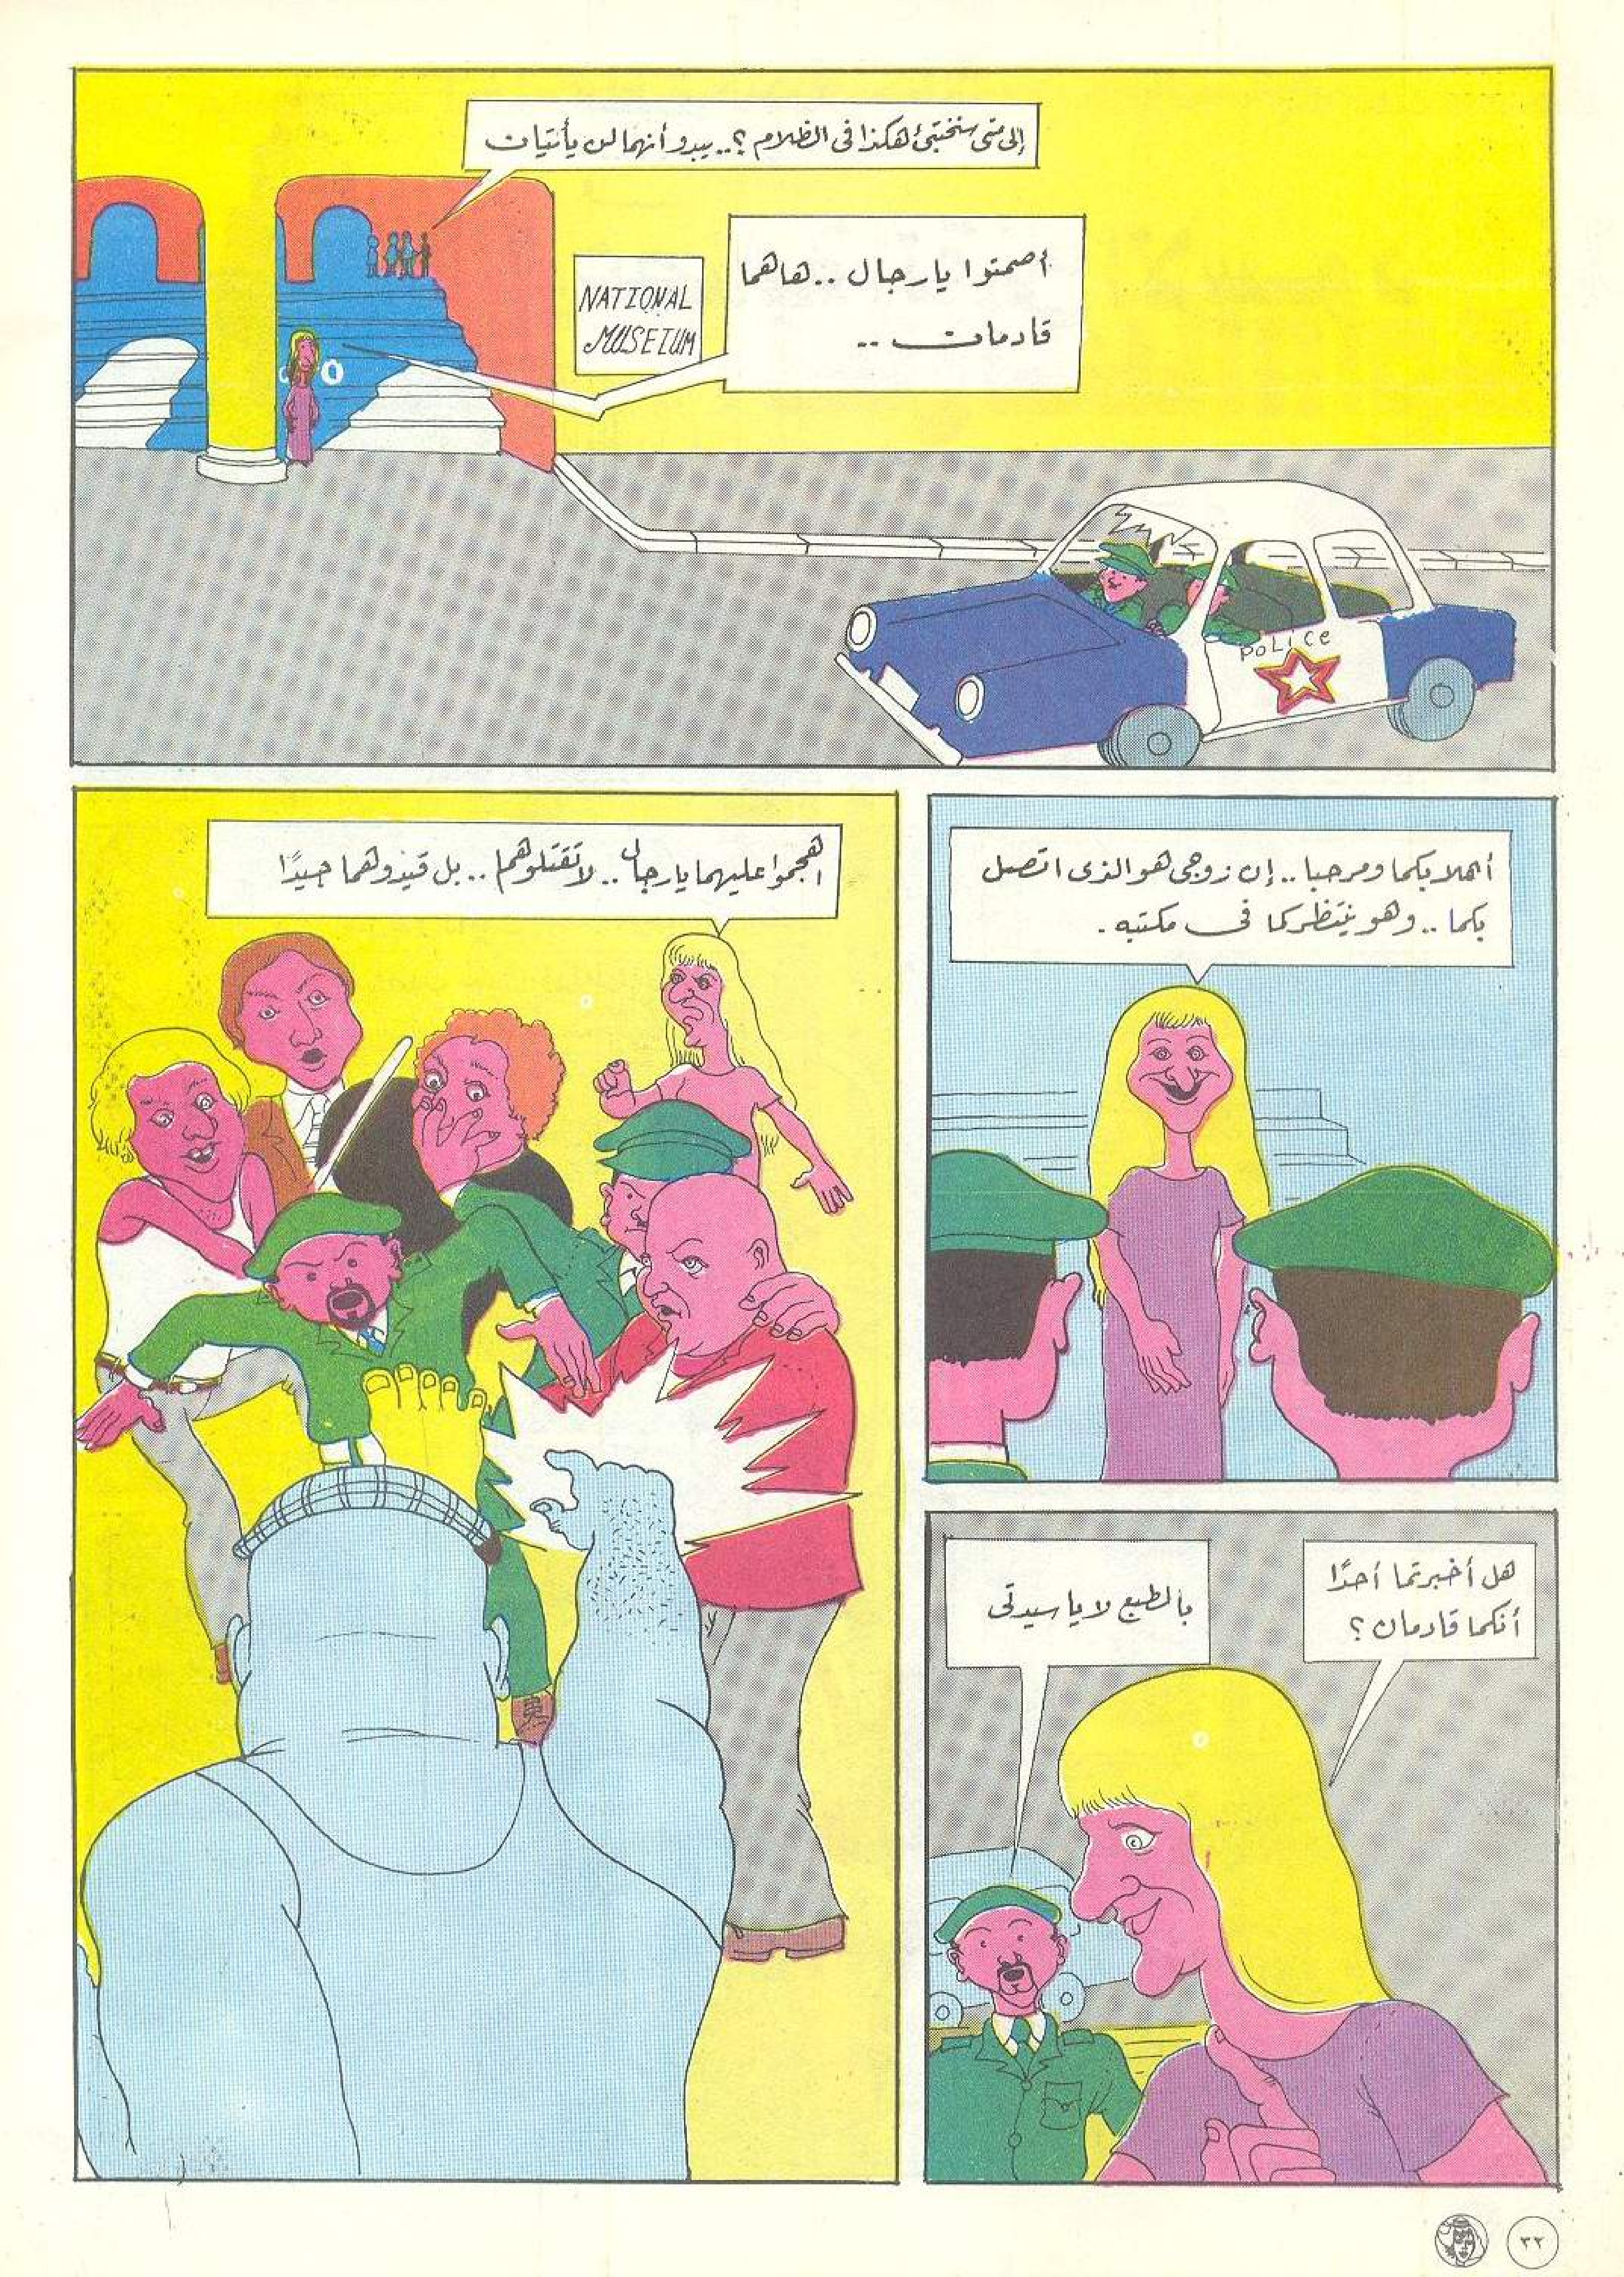 إلى متى سنختبئ هكذا في الظلام ؟.. يبدو أنهما لن يأتيان
أصمتوا يارجال .. هاهما
قادمان ..
NATIONAL
MUSEIUM
POLICE
أهلا بكما ومرحبا .. إن زوجى هو الذى اتصل
بكما .. وهو ينتظركما فى مكتبه .
هل أخبرتما أحدًا
أنكما قادمان ؟
بالطبع لا يا سيدتى
اهجموا عليهما يارجال .. لا تقتلوهما .. بل قيدوهما جيدًا
٣٢